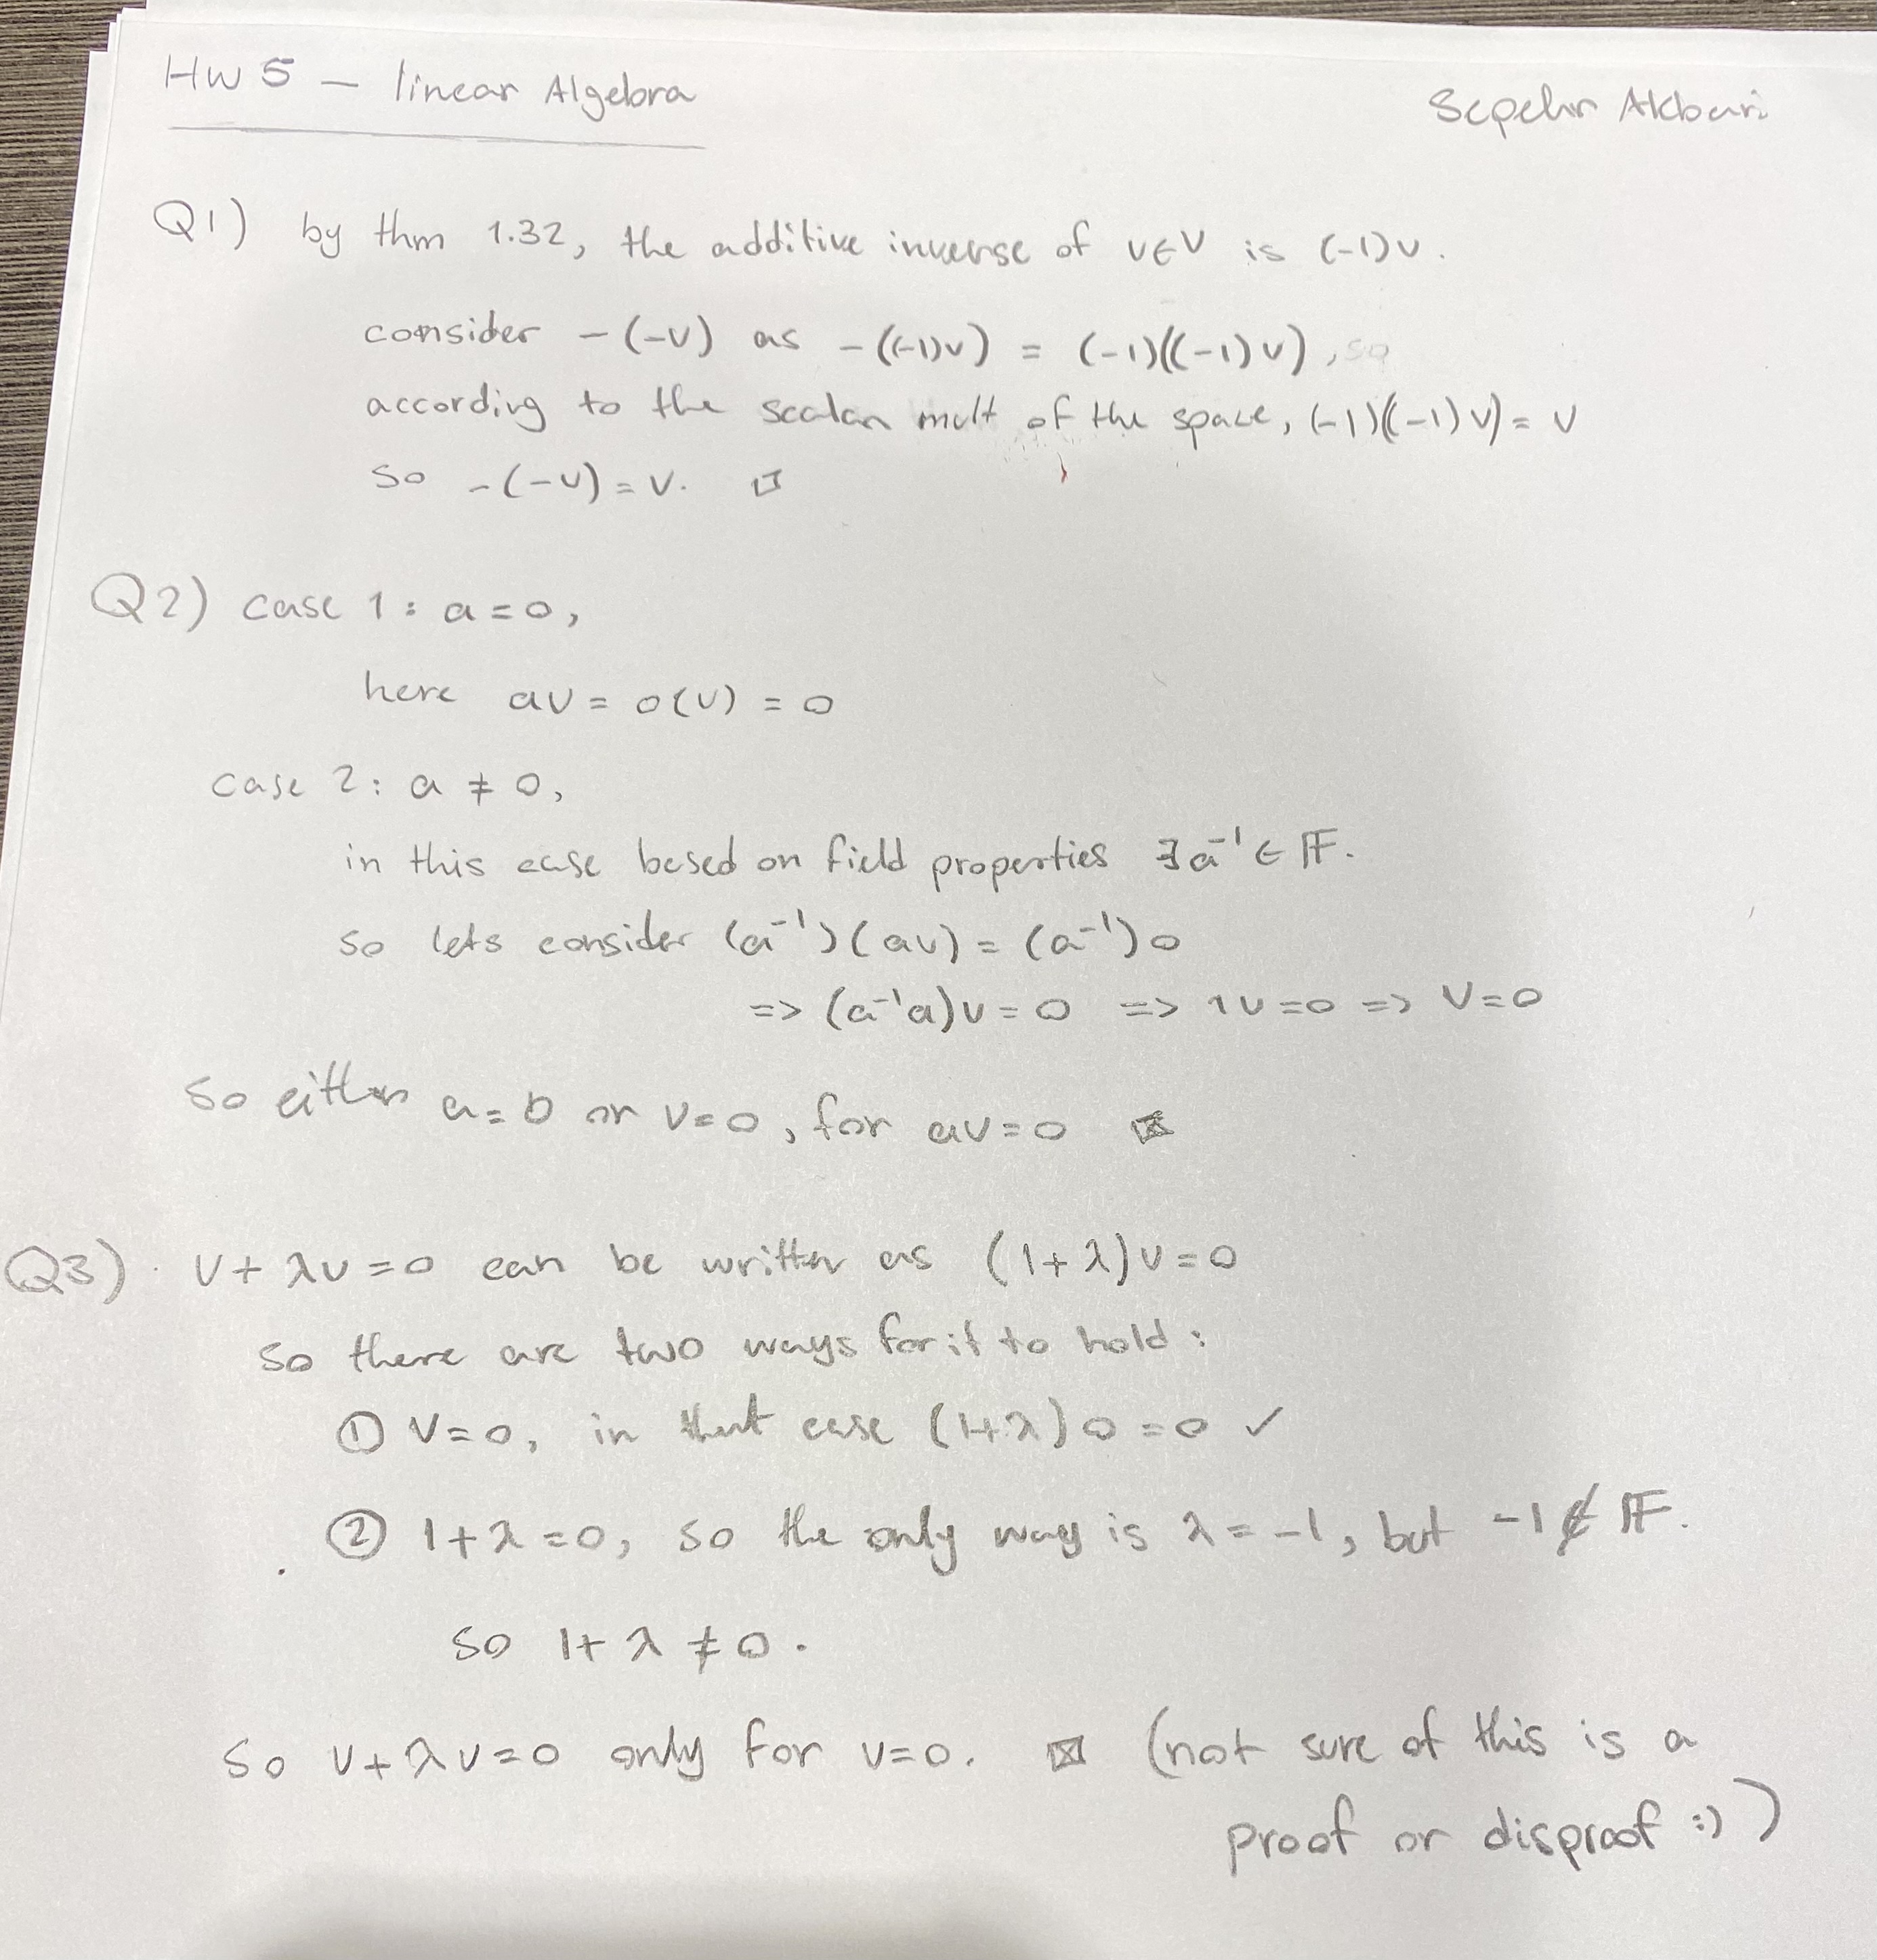 HW 5 — linear Algebra
Sepehr Akbari
Q1) by thm 1.32, the additive inverse of v∈V is (-1)v.
consider -(-v) as -((-1)v) = (-1)((-1)v), so
according to the scalar mult of the space, (-1)((-1)v) = v
so -(-v) = v. □
Q2) case 1: a=0,
here av = 0(v) = 0
case 2: a ≠ 0,
in this case based on field properties ∃a⁻¹ ∈ 𝔽.
so lets consider (a⁻¹)(av) = (a⁻¹)0
=> (a⁻¹a)v = 0 => 1v = 0 => v=0
so either a=0 or v=0, for av=0 ⊠
Q3) v + λv = 0 can be written as (1+λ)v=0
so there are two ways for it to hold:
① v=0, in that case (1+λ)0 = 0 ✓
② 1+λ=0, so the only way is λ=-1, but -1 ∉ 𝔽.
so 1+λ ≠ 0.
so v+λv=0 only for v=0. ⊠ (not sure of this is a
proof or disproof :))